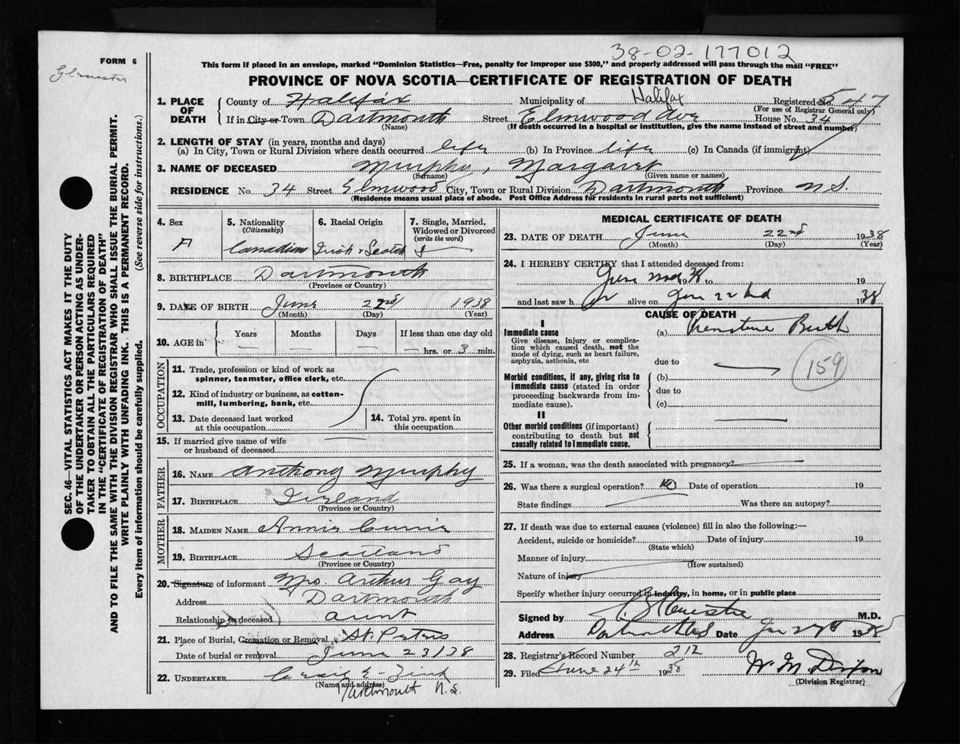 38-02-177012
FORM 6
This form if placed in an envelope, marked "Dominion Statistics—Free, penalty for improper use $300," and properly addressed will pass through the mail "FREE"
PROVINCE OF NOVA SCOTIA—CERTIFICATE OF REGISTRATION OF DEATH
SEC. 46—VITAL STATISTICS ACT MAKES IT THE DUTY
OF THE UNDERTAKER OR PERSON ACTING AS UNDER-
TAKER TO OBTAIN ALL THE PARTICULARS REQUIRED
IN THE "CERTIFICATE OF REGISTRATION OF DEATH"
AND TO FILE THE SAME WITH THE DIVISION REGISTRAR WHO SHALL ISSUE THE BURIAL PERMIT.
WRITE PLAINLY WITH UNFADING INK. THIS IS A PERMANENT RECORD.
Every item of information should be carefully supplied. (See reverse side for instructions.)
1. PLACE OF DEATH
County of Halifax Municipality of Halifax Registered No. 547
(For use of Registrar General only)
If in City or Town Dartmouth Street Elmwood Ave House No. 34
(Name) (If death occurred in a hospital or institution, give the name instead of street and number)
2. LENGTH OF STAY (in years, months and days)
(a) In City, Town or Rural Division where death occurred life (b) In Province life (c) In Canada (if immigrant)
3. NAME OF DECEASED Murphy, Margaret
(Surname) (Given name or names)
RESIDENCE No. 34 Street Elmwood City, Town or Rural Division Dartmouth Province N.S.
(Residence means usual place of abode. Post Office Address for residents in rural parts not sufficient)
4. Sex F
5. Nationality (Citizenship) Canadian
6. Racial Origin Irish & Scotch
7. Single, Married, Widowed or Divorced (write the word) S
8. BIRTHPLACE Dartmouth
(Province or Country)
9. DATE OF BIRTH June 22nd 1938
(Month) (Day) (Year)
10. AGE in Years Months Days If less than one day old
hrs. or 3 min.
OCCUPATION
11. Trade, profession or kind of work as spinner, teamster, office clerk, etc.
12. Kind of industry or business, as cotton-mill, lumbering, bank, etc.
13. Date deceased last worked at this occupation
14. Total yrs. spent in this occupation
15. If married give name of wife or husband of deceased
FATHER
16. NAME Anthony Murphy
17. BIRTHPLACE Ireland
(Province or Country)
MOTHER
18. MAIDEN NAME Annie Currie
19. BIRTHPLACE Scotland
(Province or Country)
20. Signature of informant Mrs. Arthur Gay
Address Dartmouth
Relationship to deceased aunt
21. Place of Burial, Cremation or Removal St. Peters
Date of burial or removal June 23/38
22. UNDERTAKER
(Name and address)
Dartmouth N.S.
MEDICAL CERTIFICATE OF DEATH
23. DATE OF DEATH June 22nd 1938
(Month) (Day) (Year)
24. I HEREBY CERTIFY that I attended deceased from:
June 22nd 38
and last saw h er alive on June 22nd 1938
CAUSE OF DEATH
I
Immediate cause
Give disease, injury or complication which caused death, not the mode of dying, such as heart failure, asphyxia, asthenia, etc
(a) Premature Birth
due to
159
Morbid conditions, if any, giving rise to immediate cause (stated in order proceeding backwards from immediate cause).
(b)
due to
(c)
II
Other morbid conditions (if important) contributing to death but not causally related to immediate cause.
25. If a woman, was the death associated with pregnancy?
26. Was there a surgical operation? No Date of operation 19
State findings Was there an autopsy?
27. If death was due to external causes (violence) fill in also the following:—
Accident, suicide or homicide? Date of injury 19
(State which)
Manner of injury
(How sustained)
Nature of injury
Specify whether injury occurred in industry, in home, or in public place
Signed by M.D.
Address Date 1938
28. Registrar's Record Number 212
29. Filed June 24th 1938
(Division Registrar)